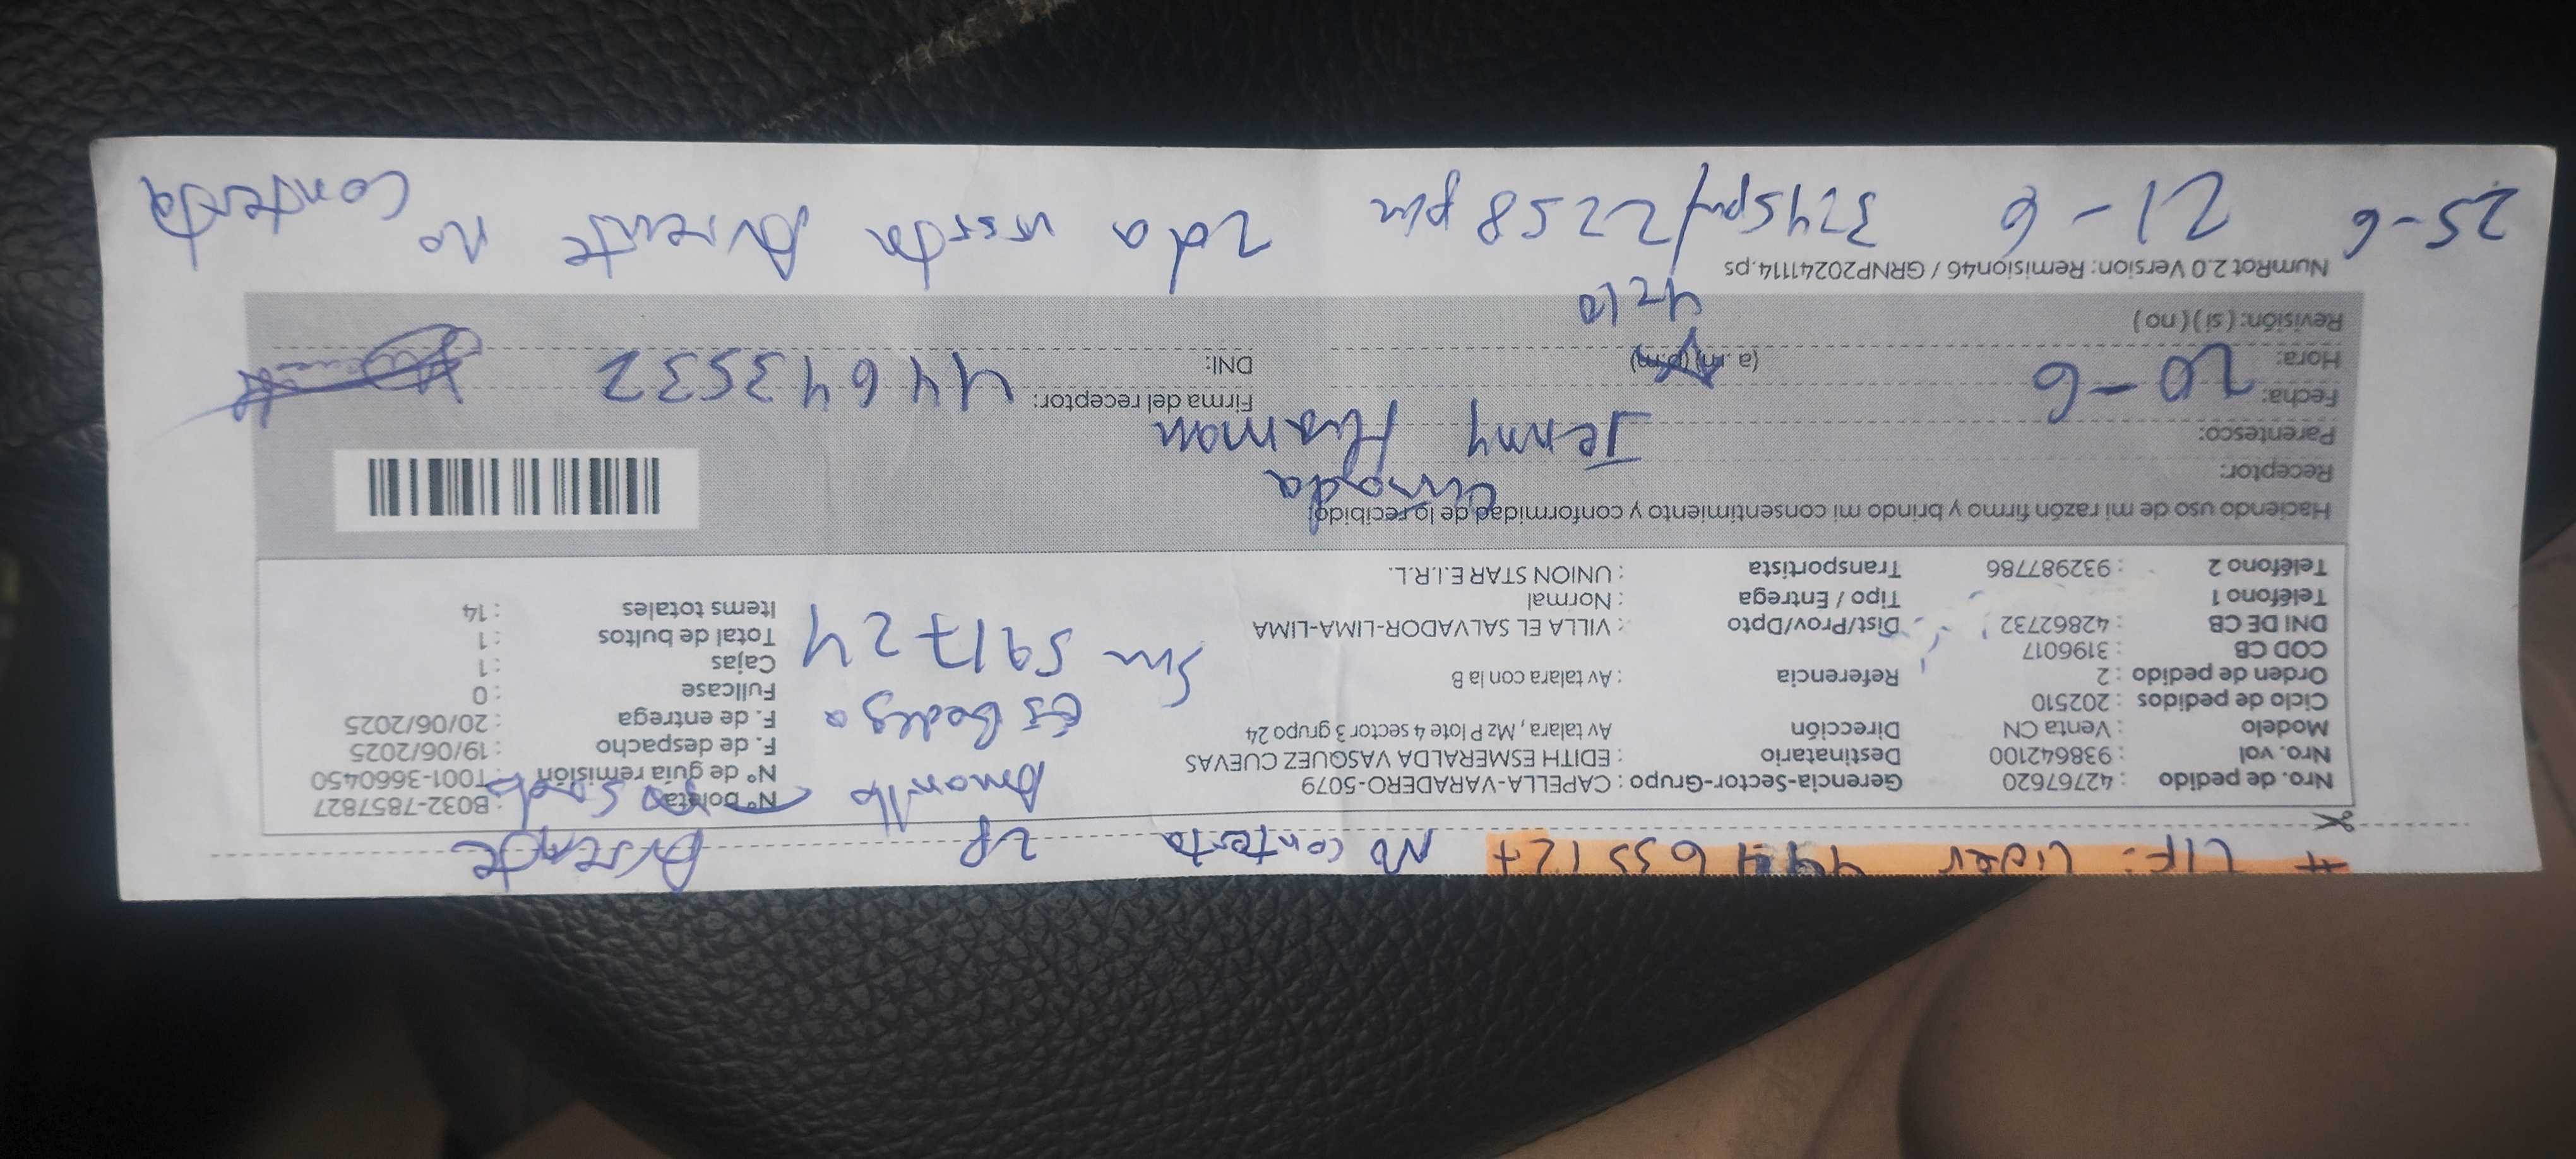 # LIF: Lider No contesta 2P Ausente
Nro. de pedido : 42767620 Gerencia-Sector-Grupo : CAPELLA-VARADERO-5079 N° boleta : B032-7857827
Nro. vol : 938642100 Destinatario : EDITH ESMERALDA VASQUEZ CUEVAS N° de guía remisión : T001-3660450
Amarillo
Modelo : Venta CN Dirección Av talara, Mz P lote 4 sector 3 grupo 24 F. de despacho : 19/06/2025
Ciclo de pedidos : 202510 F. de entrega : 20/06/2025
es bodega
Orden de pedido : 2 Referencia : Av talara con la B Fullcase : 0
COD CB : 3196017 Cajas : 1
Sum 591724
DNI DE CB : 42862732 Dist/Prov/Dpto : VILLA EL SALVADOR-LIMA-LIMA Total de bultos : 1
Teléfono 1 : Tipo / Entrega : Normal Items totales : 14
Teléfono 2 : 932987786 Transportista : UNION STAR E.I.R.L.
Haciendo uso de mi razón firmo y brindo mi consentimiento y conformidad de lo recibido:
Receptor:
Parentesco: Jenny Huaman
Fecha: 20-6 Firma del receptor: 446435532
Hora: (a.m) (p.m) DNI:
Revisión: ( si ) ( no )
4210
NumRot 2.0 Version: Remision46 / GRNP20241114.ps
25-6 21-6 3245pm/22258pm 2da visita Ausente no contesta